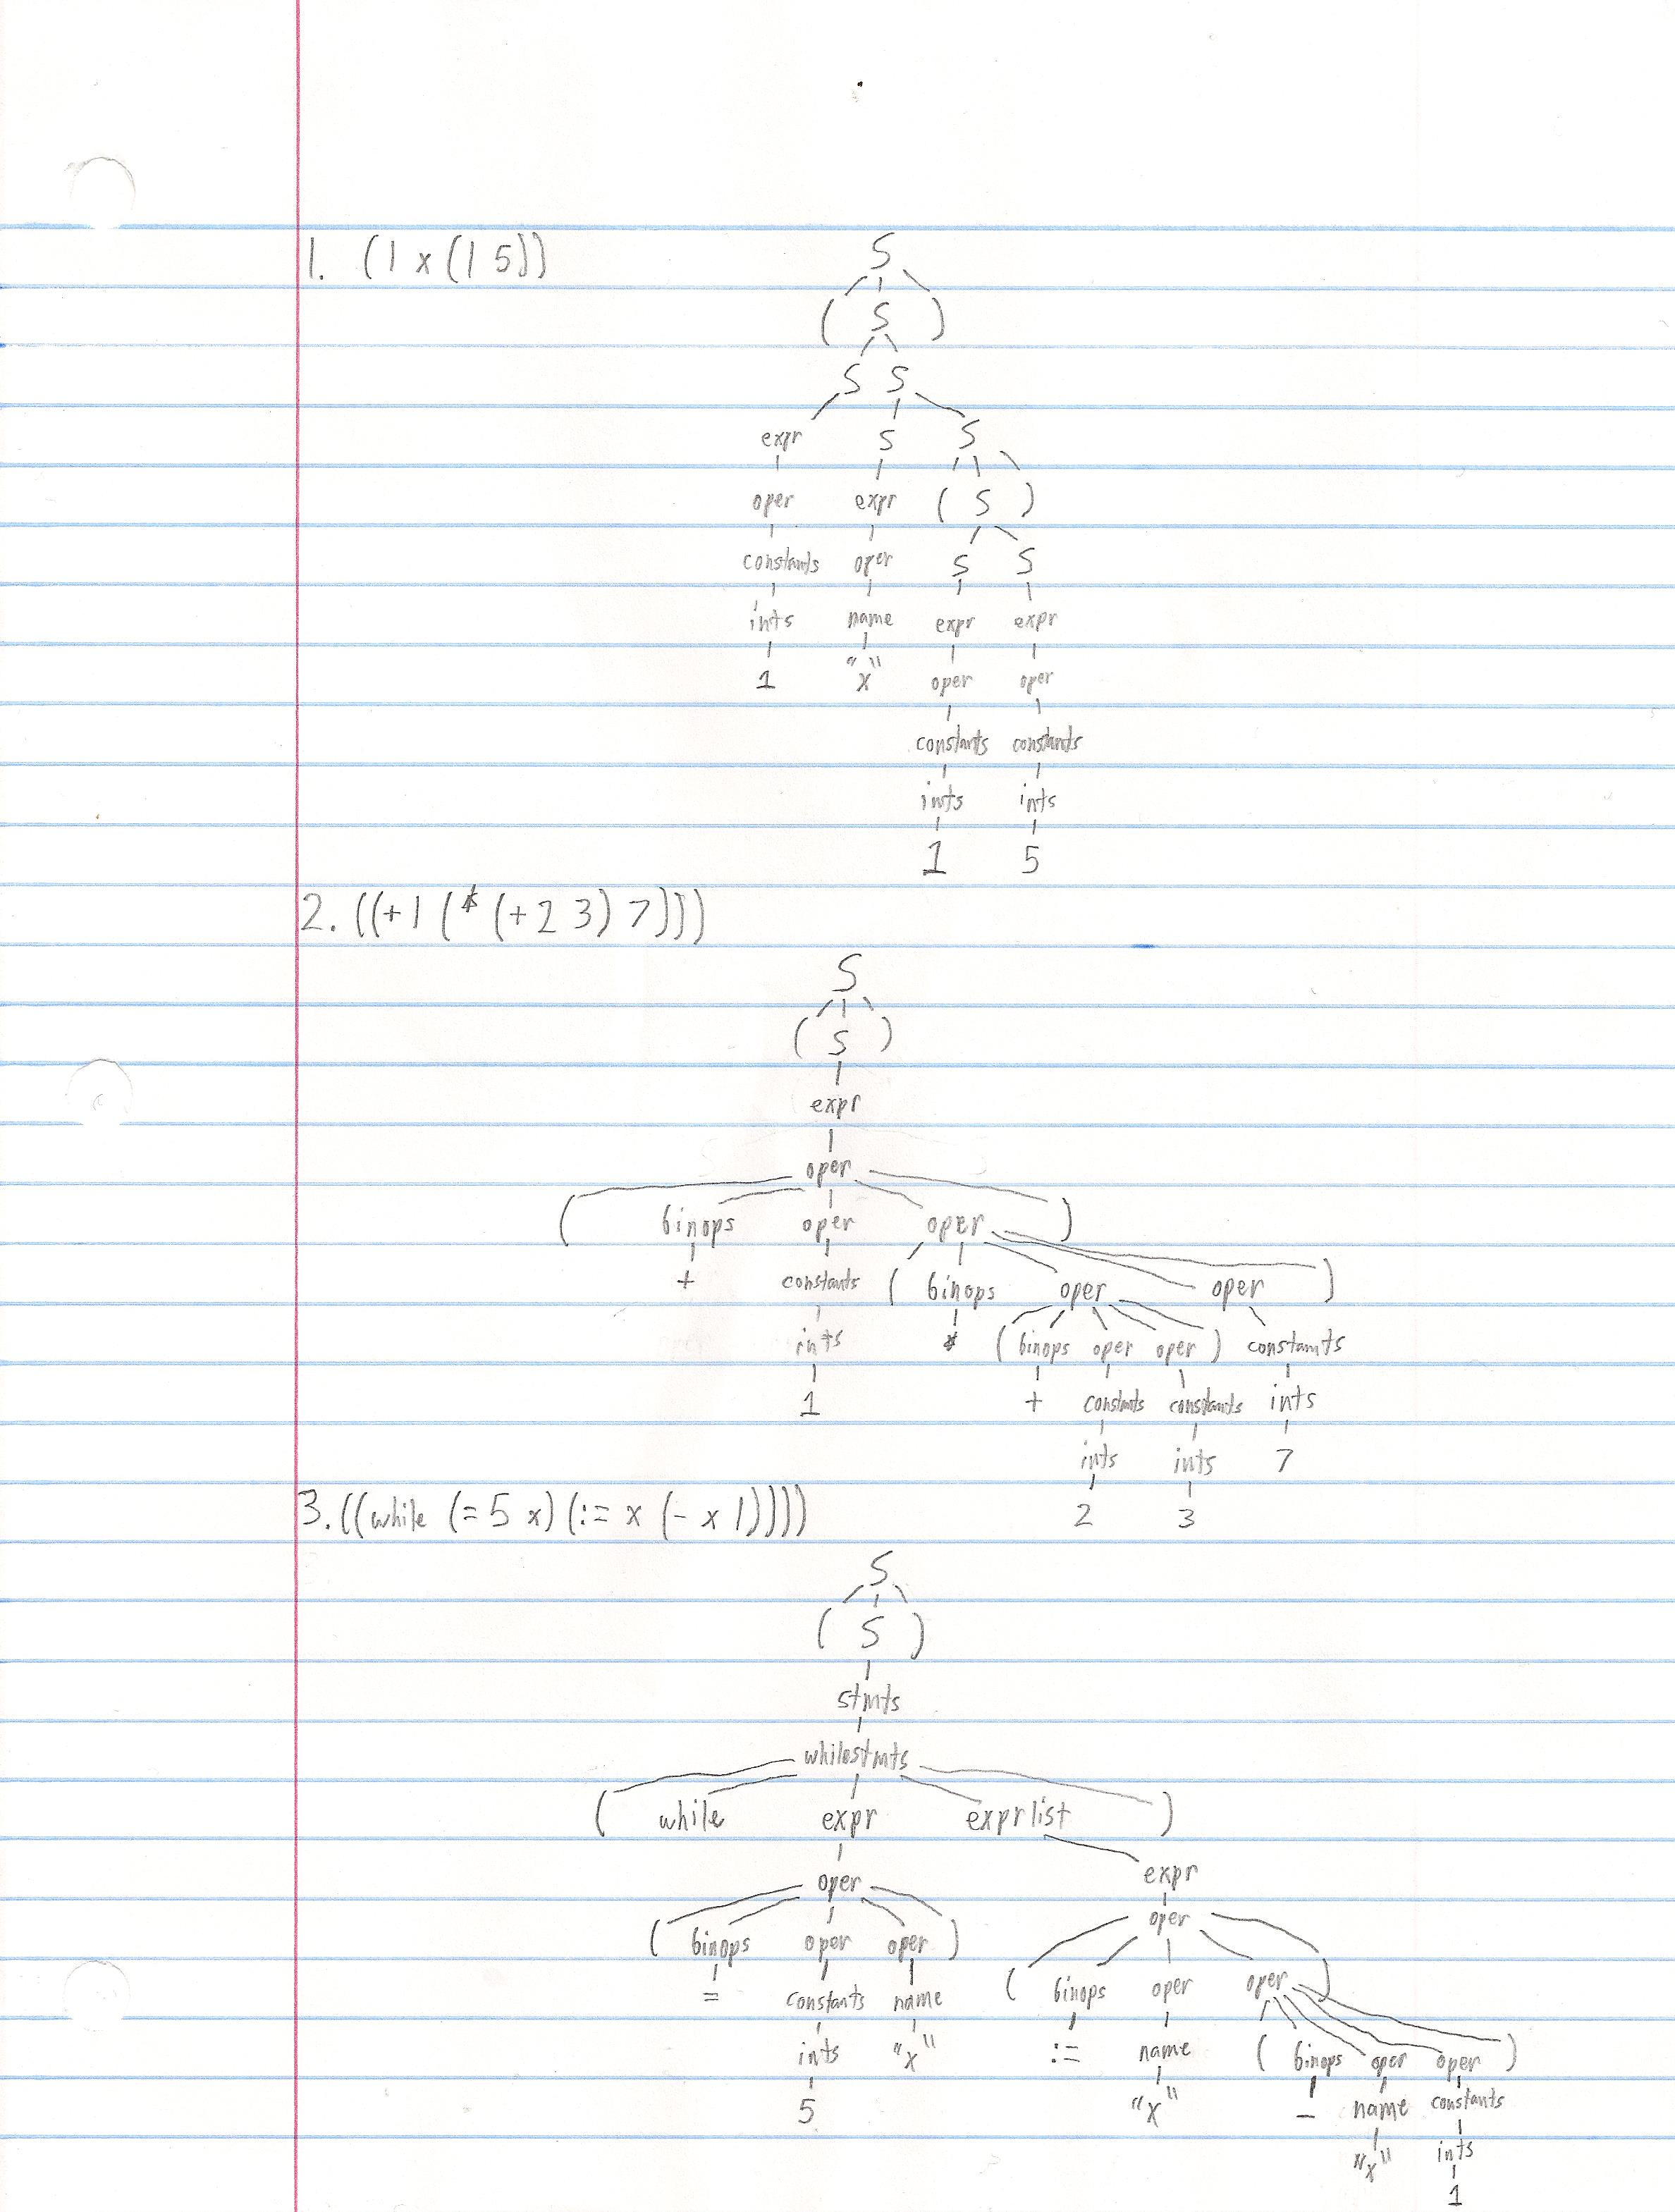 1. (1 x (1 5))
S
( S )
S S
expr S S
oper expr ( S )
constants oper S S
ints name expr expr
1 "x" oper oper
constants constants
ints ints
1 5
2. ((+ 1 (* (+ 2 3) 7)))
S
( S )
expr
oper
( binops oper oper )
+ constants ( binops oper oper )
ints * ( binops oper oper ) constants
1 + constants constants ints
ints ints 7
2 3
3. ((while (= 5 x) (:= x (- x 1))))
S
( S )
stmts
whilestmts
( while expr exprlist )
expr
oper
oper
( binops oper oper )
( binops oper oper )
= constants name
ints "x"
:= name ( binops oper oper )
5
"x" - name constants
"x" ints
1